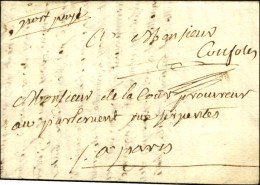 port payé
A Monsieur
Monsieur de la Cour procureur
au parlement rue
a paris